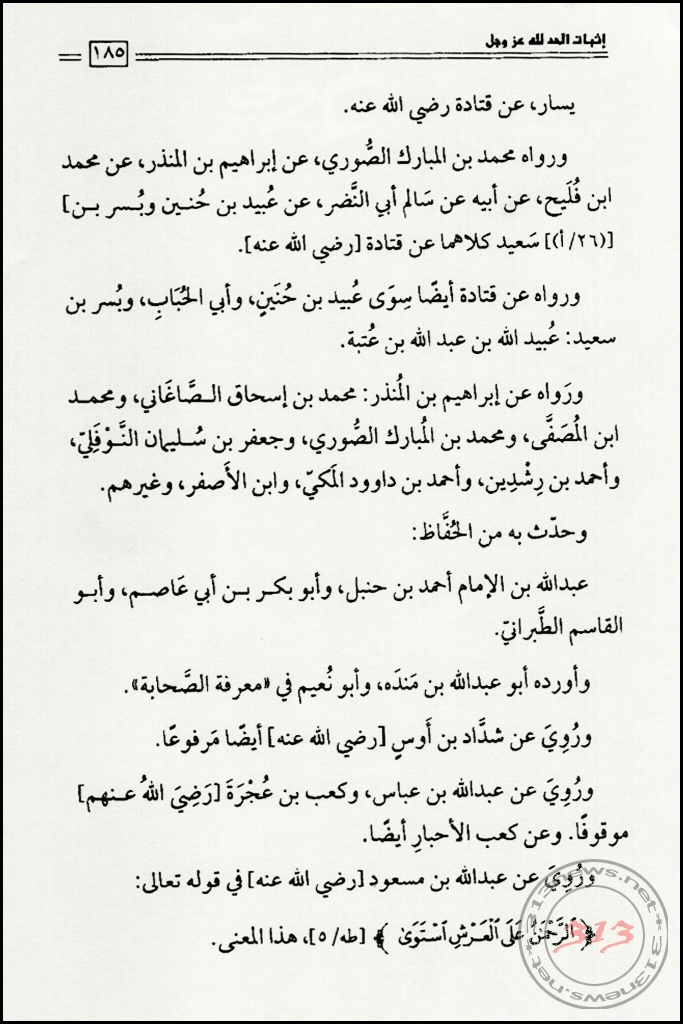 إثبات الحد لله عز وجل
١٨٥
يسار، عن قتادة رضي الله عنه.
ورواه محمد بن المبارك الصُّوري، عن إبراهيم بن المنذر، عن محمد
ابن فُلَيح، عن أبيه عن سَالم أبي النَّضر، عن عُبيد بن حُنـين وبُـسر بـن]
[(٢٦/ أ)] سَعيد كلاهما عن قتادة [رضي الله عنه].
ورواه عن قتادة أيضًا سِوَى عُبيد بن حُنَينٍ، وأبي الحُبَابِ، وبُسر بن
سعيد: عُبيد الله بن عبد الله بن عُتبة.
ورَواه عن إبراهيم بن المُنذر: محمد بن إسحاق الـصَّاغَاني، ومحمـد
ابن المُصَفَّى، ومحمد بن المُبارك الصُّوري، وجعفر بن سُـليمان النَّـوْفَلِيّ،
وأحمد بن رِشْدِين، وأحمد بن داوود المَكيّ، وابن الأَصفر، وغيرهم.
وحدّث به من الحُفَّاظ:
عبدالله بن الإمام أحمد بن حنبل، وأبو بكـر بـن أبي عَاصـم، وأبـو
القاسم الطَّبرانيّ.
وأورده أبو عبدالله بن مَندَه، وأبو نُعيم في «معرفة الصَّحابة».
ورُوِيَ عن شدَّاد بن أَوسٍ [رضي الله عنه] أيضًا مَرفوعًا.
ورُوِيَ عن عبدالله بن عباس، وكعب بن عُجْرَةَ [رَضِيَ اللهُ عـنهم]
موقوفًا. وعن كعب الأحبارِ أيضًا.
ورُوِيَ عن عبدالله بن مسعود [رضي الله عنه] في قوله تعالى:
﴿ ٱلرَّحْمَٰنُ عَلَى ٱلْعَرْشِ ٱسْتَوَىٰ ﴾ [طه/ ٥]، هذا المعنى.
313news.net
313
313news.net